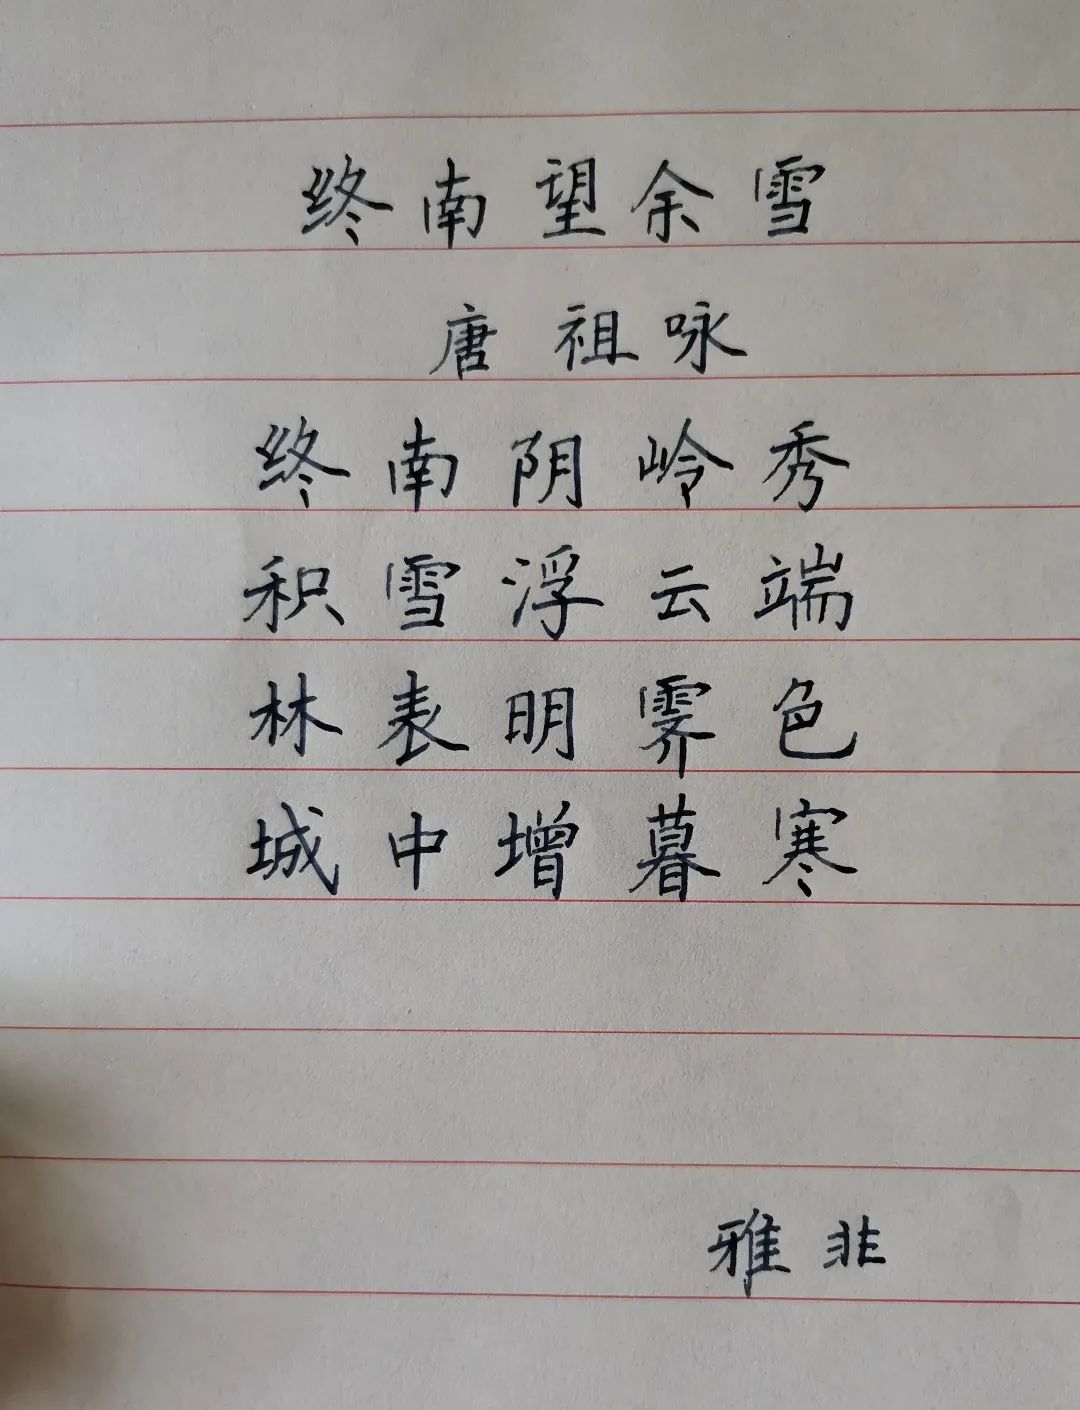 终南望余雪
唐 祖咏
终南阴岭秀
积雪浮云端
林表明霁色
城中增暮寒
雅非